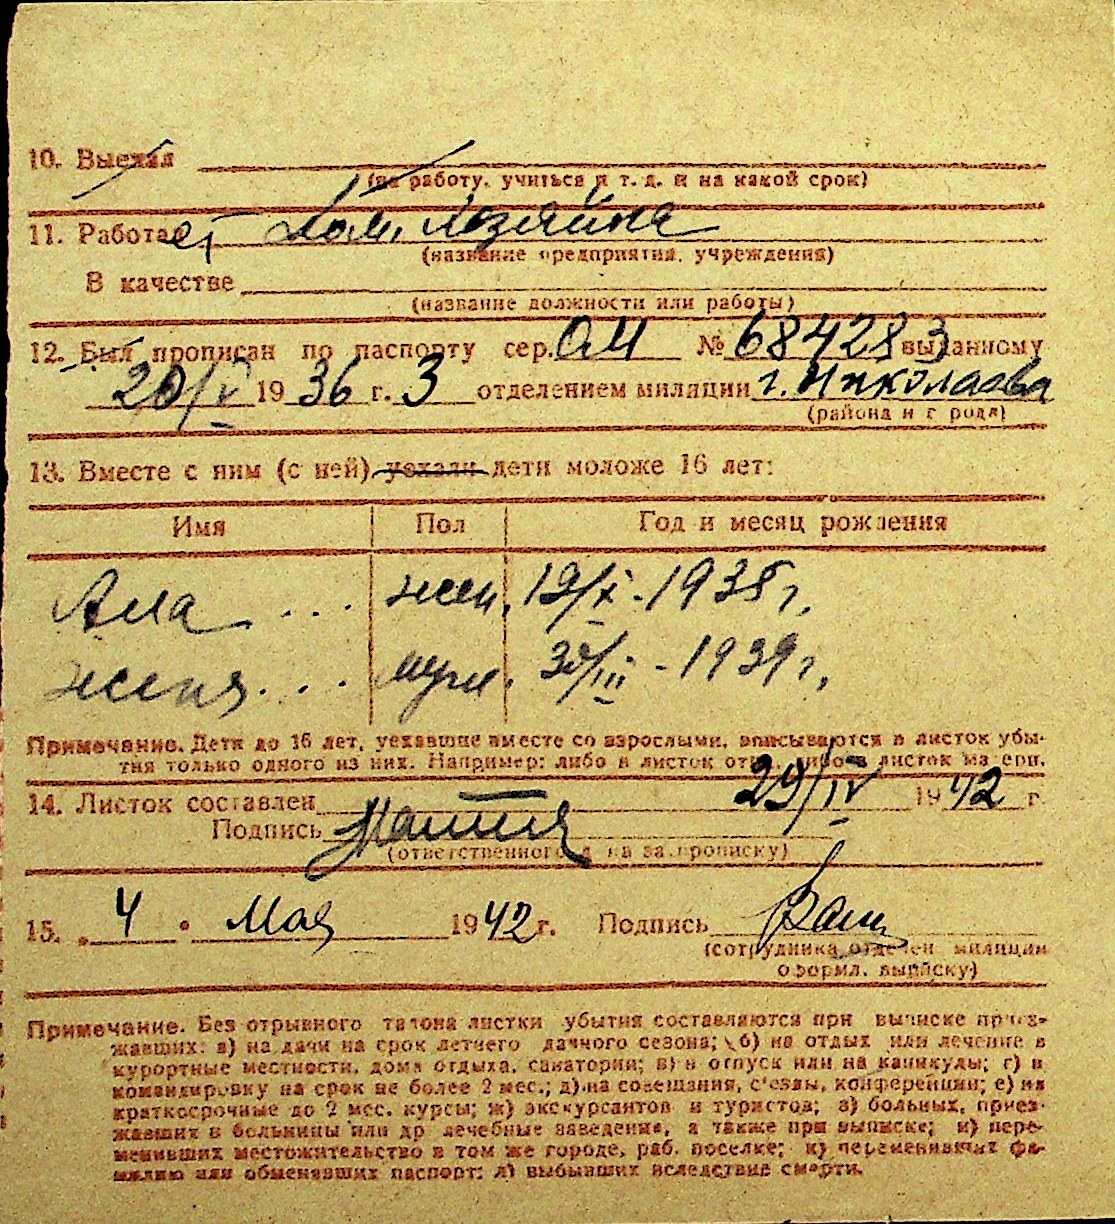 10. Выехал
(на работу, учиться и т. д. и на какой срок)
11. Работает Дом. Хозяйка
(название предприятия, учреждения)
В качестве
(название должности или работы)
12. Был прописан по паспорту сер. ОЧ № 684283 выданному
20/V 1936 г. 3 отделением милиции г. Николаева
(района и города)
13. Вместе с ним (с ней) уехали дети моложе 16 лет:
Имя Пол Год и месяц рождения
Ала . . . жен. 19/X - 1935 г.
Женя . . . муж. 30/III - 1939 г.
Примечание. Дети до 16 лет, уехавшие вместе со взрослыми, вписываются в листок убы-
тия только одного из них. Например: либо в листок отца, либо в листок матери.
14. Листок составлен 29/IV 1942 г.
Подпись
(ответственного д. на за прописку)
15. „ 4 " Мая 1942 г. Подпись
(сотрудника отделен. милиции
оформл. выписку)
Примечание. Без отрывного талона листки убытия составляются при выписке приез-
жавших: а) на дачи на срок летнего дачного сезона; б) на отдых или лечение в
курортные местности, дома отдыха, санатории; в) в отпуск или на каникулы; г) в
командировку на срок не более 2 мес.; д) на совещания, съезды, конференции; е) на
краткосрочные до 2 мес. курсы; ж) экскурсантов и туристов; з) больных, приез-
жавших в больницы или др лечебные заведения, а также при выписке; и) пере-
менивших местожительство в том же городе, раб. поселке; к) переменивших фа-
милию или обменявших паспорт; л) выбывших вследствие смерти.